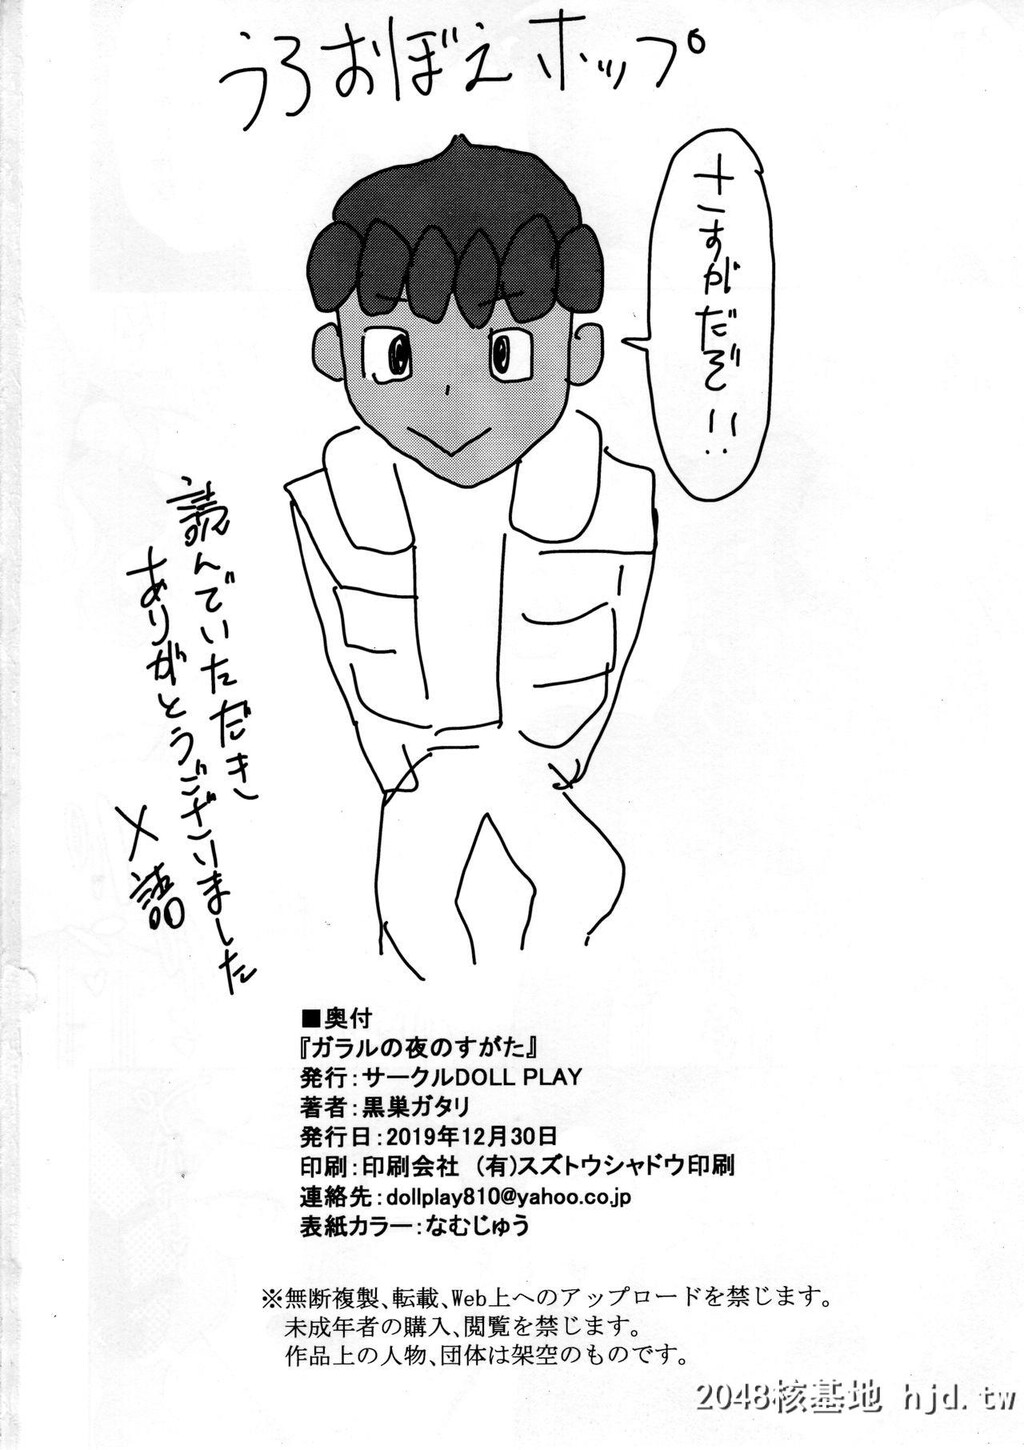 うろおぼえホップ
さすがだぞ!!
読んでいただき
ありがとうございました
■奥付
『ガラルの夜のすがた』
発行：サークルDOLL PLAY
著者：黒巣ガタリ
発行日：2019年12月30日
印刷：印刷会社　(有)スズトウシャドウ印刷
連絡先：dollplay810@yahoo.co.jp
表紙カラー：なむじゅう
※無断複製、転載、Web上へのアップロードを禁じます。
未成年者の購入、閲覧を禁じます。
作品上の人物、団体は架空のものです。
2048核基地 hjd.tw